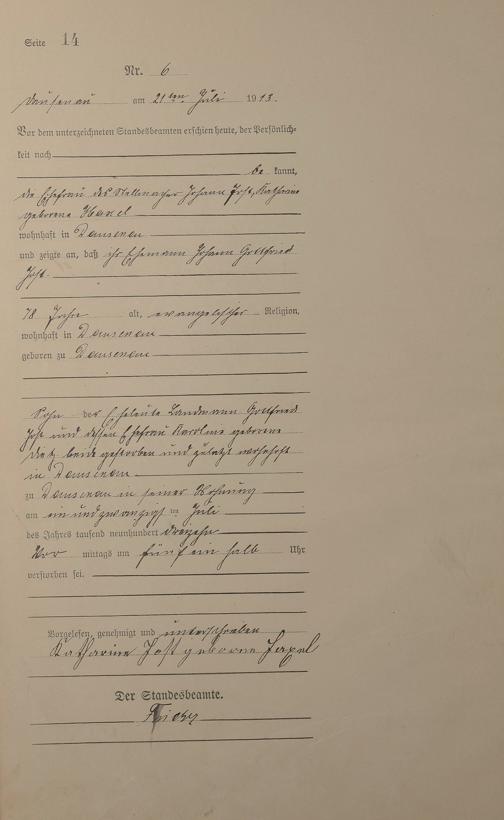 Seite 14
Nr. 6
Dausenau am 21ten Juli 1913.
Vor dem unterzeichneten Standesbeamten erschien heute, der Persönlich-
keit nach
be kannt,
die Ehefrau des Stellmacher Johann Jost, Katharine
geborene
wohnhaft in Dausenau
und zeigte an, daß ihr Ehemann Johann Gottfried
Jost
78 Jahre alt, evangelischer Religion,
wohnhaft in Dausenau
geboren zu Dausenau
Sohn der Eheleute Landmann Gottfried
Jost und dessen Ehefrau Karoline geborene
beide gestorben und zuletzt wohnhaft
in Dausenau
zu Dausenau in seiner Wohnung
am ein und zwanzigst ten Juli
des Jahres tausend neunhundert dreizehn
Vor mittags um fünf ein halb Uhr
verstorben sei.
Vorgelesen, genehmigt und unterschrieben
Katharine Jost geborene
Der Standesbeamte.